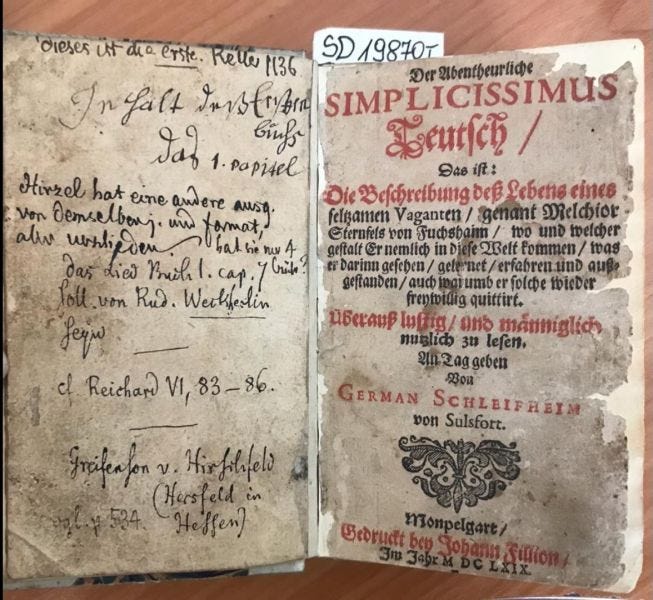 dieses ist die erste. Keller 1136
Inhalt deß Ersten
buchs
Das 1. capitel
Hirzel hat eine andere ausg.
von demselben j. und format,
aber verschieden. hat sie nur 4
das Lied Buch 1. cap. 7
soll von Rud. Weckherlin
seyn
cf. Reichard VI, 83-86.
Greifenson v. Hirschfeld
(Hersfeld in
vgl. p. 534. Hessen)
SD 19870
Der Abentheurliche
SIMPLICISSIMUS
Teutsch /
Das ist:
Die Beschreibung deß Lebens eines
seltzamen Vaganten / genant Melchior
Sternfels von Fuchshaim / wo und welcher
gestalt Er nemlich in diese Welt kommen / was
er darinn gesehen / gelernet / erfahren und auß-
gestanden / auch warumb er solche wieder
freywillig quittirt.
Überauß lustig / und männiglich
nutzlich zu lesen.
An Tag geben
Von
GERMAN SCHLEIFHEIM
von Sulsfort.
Monpelgart /
Gedruckt bey Johann Fillion /
Im Jahr M DC LXIX.